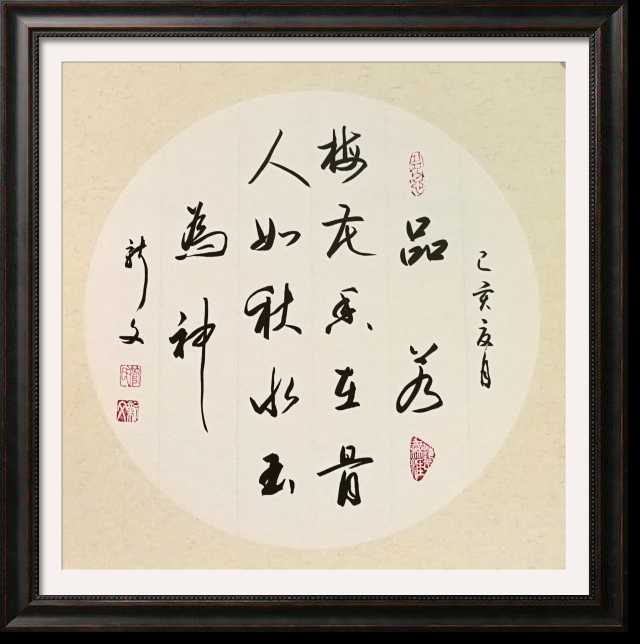 己亥夏月
品若
梅花香在骨
人如秋水玉
為神
新文